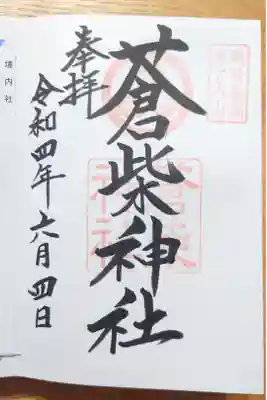 蒼柴神社
奉拝
令和四年六月四日
境内社